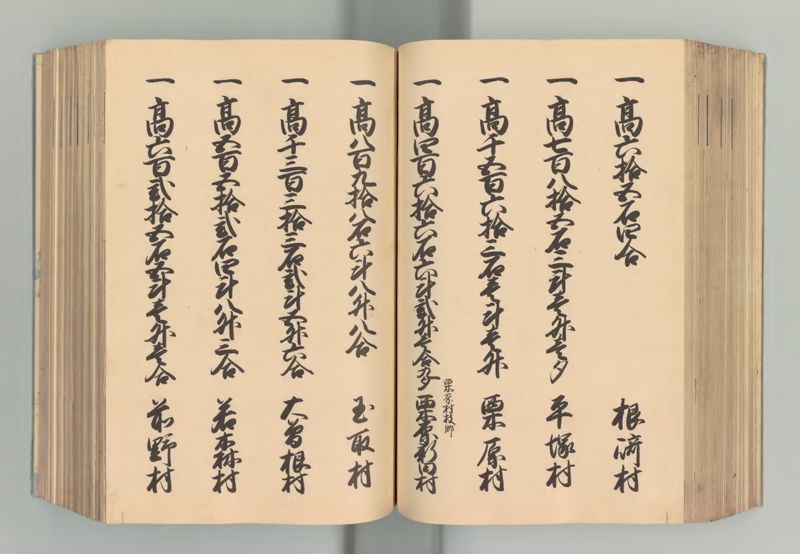 一高六拾五石四合 根崎村
一高七百八拾五石二斗壱升壱夕 平塚村
一高千五百六拾三石壱斗壱升 栗原村
栗原村枝郷
一高四百六拾六石六斗弐升壱合五夕 栗原新田村
一高八百九拾八石六斗八升八合 玉取村
一高千三百三拾三石弐斗五升六合 大曽根村
一高五百五拾弐石四斗八升三合 若森村
一高六百弐拾五石五斗壱升壱合 前野村